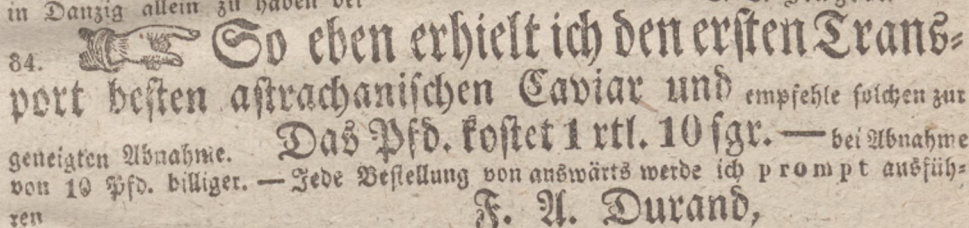 in Danzig allein zu haben bei
84. ☞ So eben erhielt ich den ersten Trans-
port besten astrachanischen Caviar und empfehle solchen zur
geneigten Abnahme. Das Pfd. kostet 1 rtl. 10 sgr. — bei Abnahme
von 10 Pfd. billiger. — Jede Bestellung von auswärts werde ich prompt ausfüh-
ren
F. A. Durand,